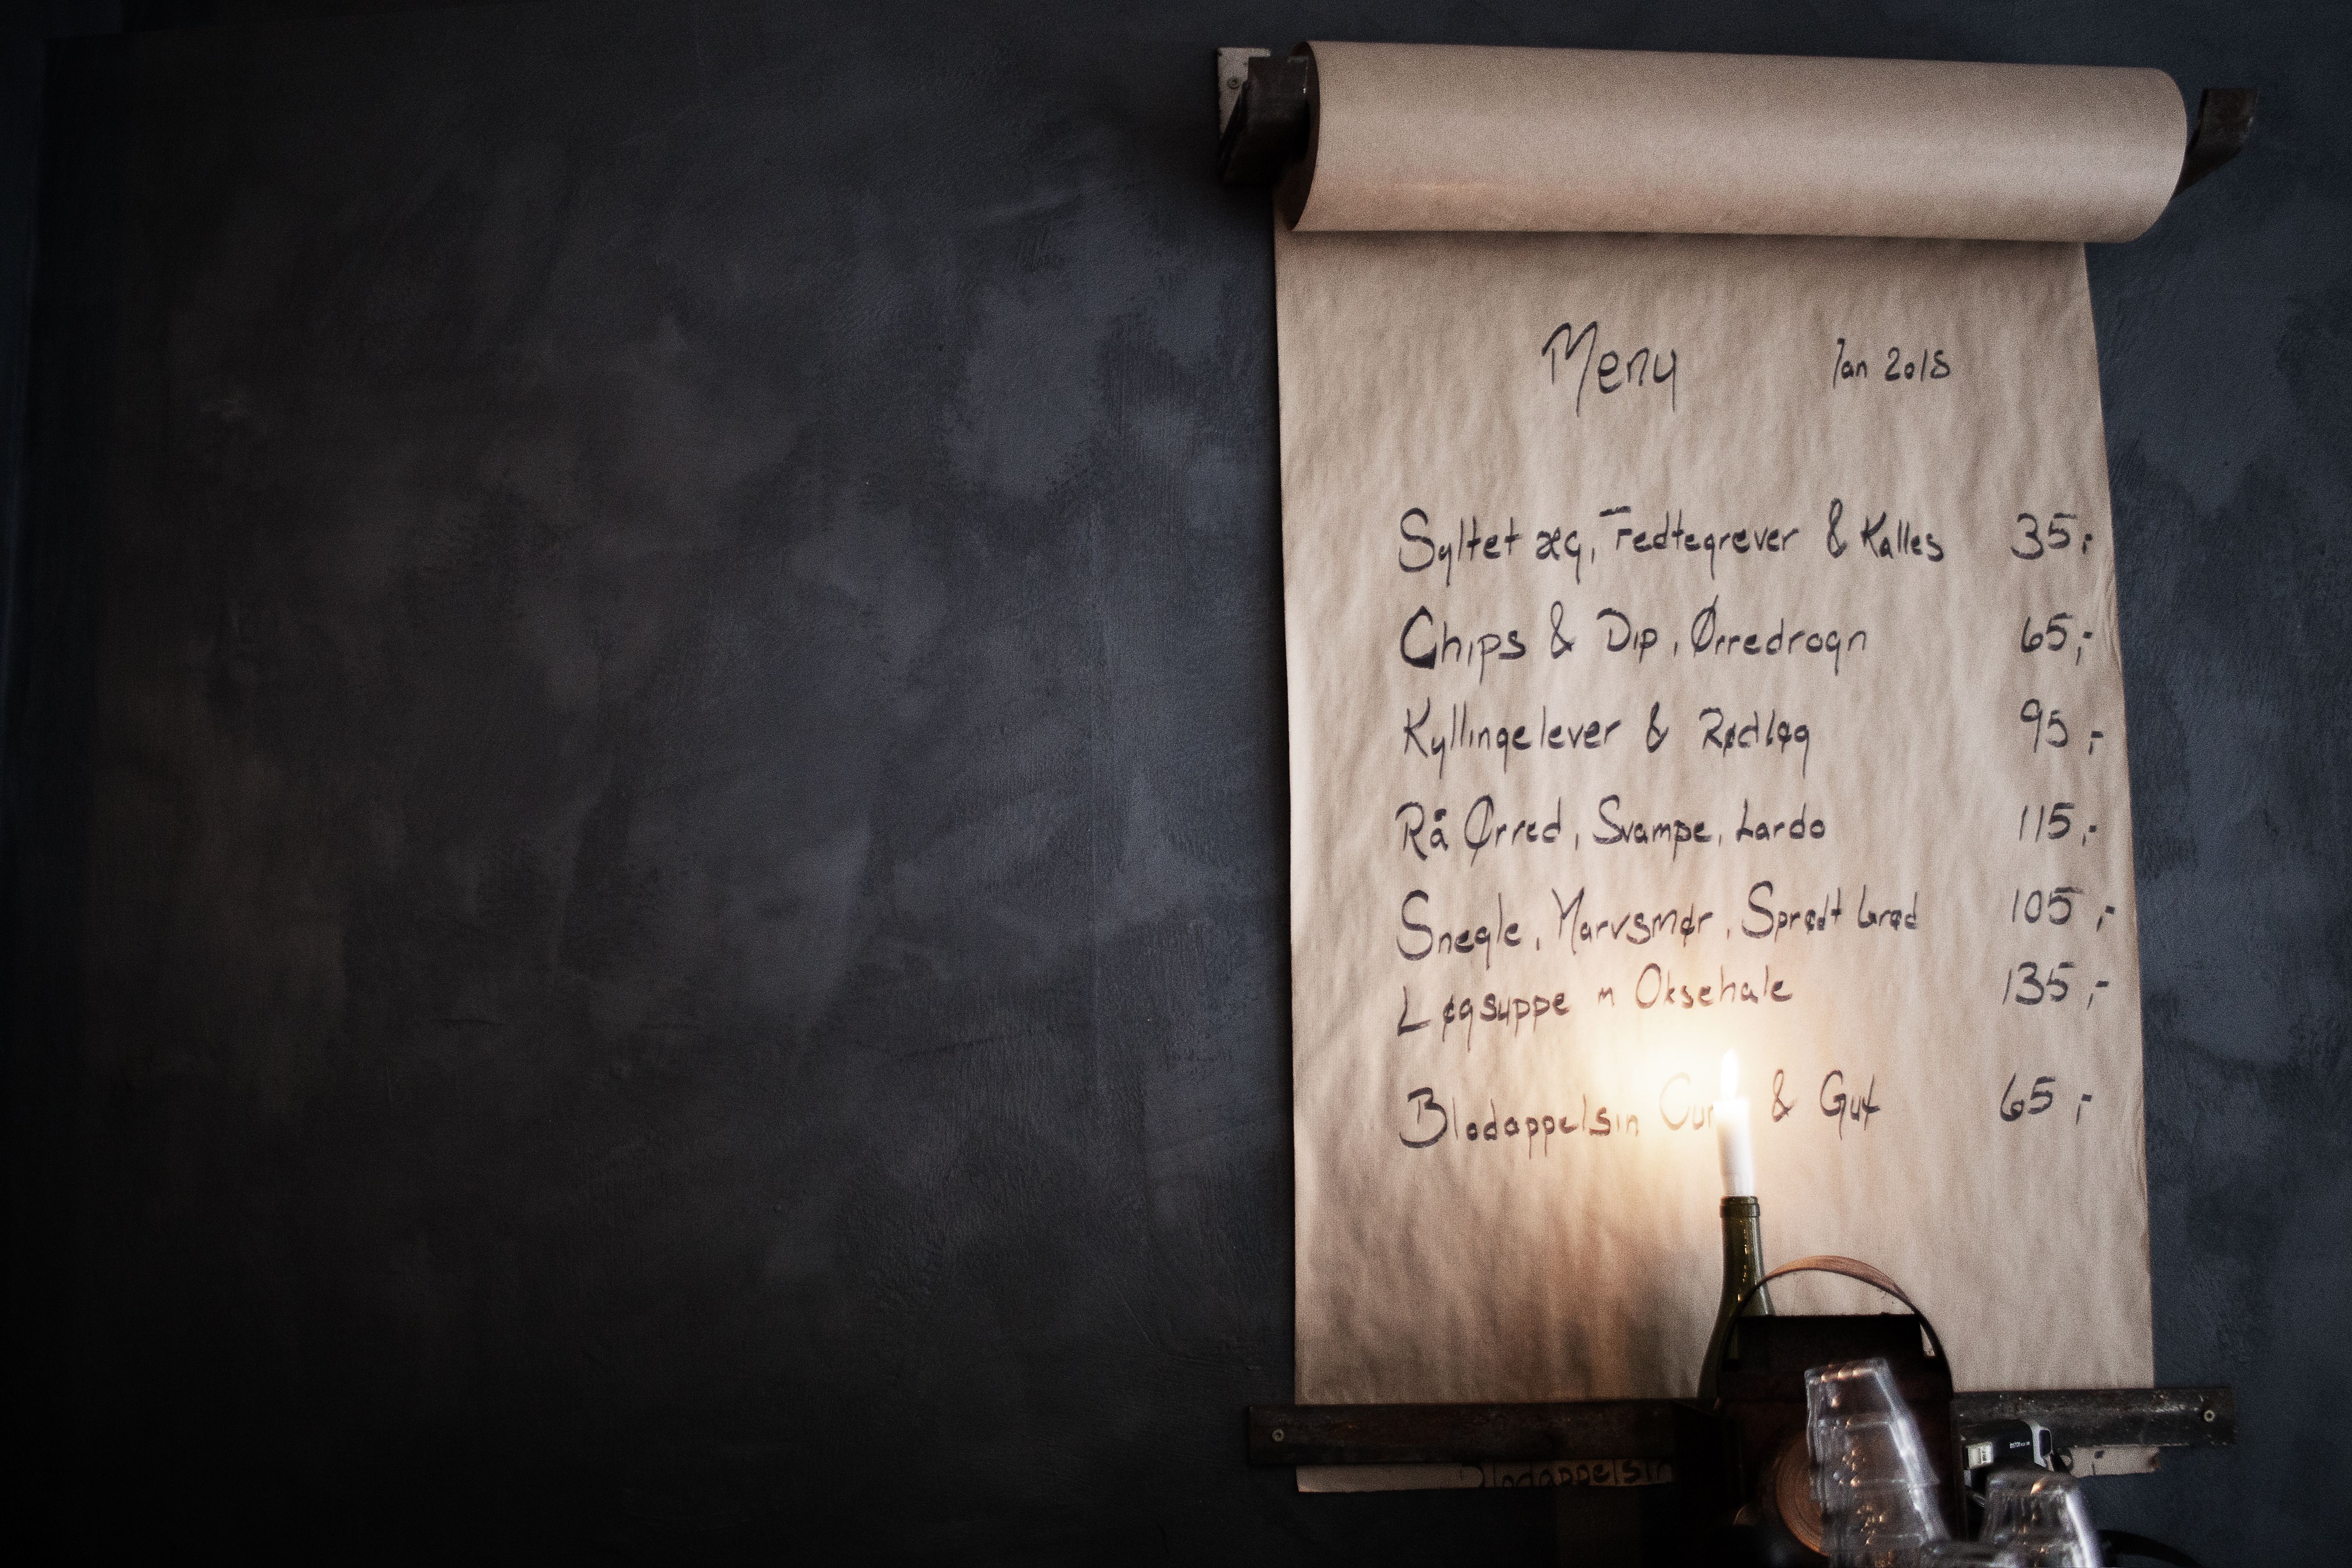 Menu Jan 2018
Syltet æg, Fedtegrever & Kalles 35,-
Chips & Dip, Ørredrogn 65,-
Kyllingelever & Rødløg 95,-
Rå Ørred, Svampe, Lardo 115,-
Snegle, Marvsmør, Sprødt brød 105,-
Løgsuppe m Oksehale 135,-
Blodappelsin & 65,-
Blodappelsin